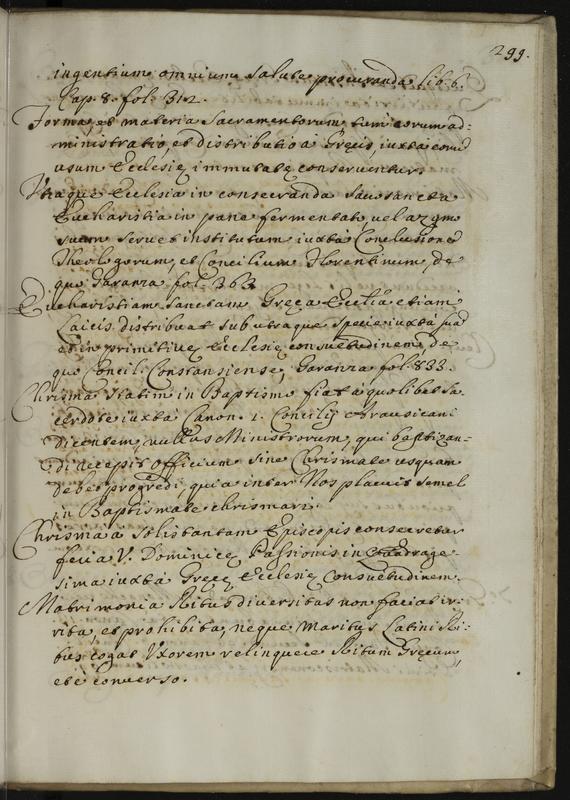 299.
ingentium omnium salute procuranda lib. 6.
Cap. 8. fol. 312.
Forma, et materia Sacramentorum tum eorum ad-
ministratio, et distributio à Grecis, iuxta eorum
usum Ecclesię immutatę conserventur.
Utraque Ecclesia in consecranda Sacrosancta
Eucharistia in pane fermentato, vel azymo
suum servet institutum iuxta Conclusiones
Theologorum, et Concilium Florentinum, de
quo Garanza fol. 363.
Eucharistiam sanctam Gręca Ecclesia etiam
Laicis distribuat sub utraque specie iuxtà suā
et in primitivę Ecclesię consuetudinem, de
quo Concil. Constansiense, Garanza fol. 833.
Chrisma statim in Baptismo fiat à quolibet Sa-
cerdote iuxtà Canon. 1. Concilij Arausicani
dicentem, nullus Ministrorum, qui baptizan-
di accepit officium sine Chrismate usquam
debet progredi, quia inter Nos placuit semel
in Baptismate chrismari.
Chrisma a solis tantum Episcopis consecretur
feria V. Dominicę Passionis in Quadrage-
sima iuxtà Gręcę Ecclesię Consuetudinem.
Matrimonia Ritus diversitas non faciat ir-
rita, et prohibita, neque Maritus Latini Ri-
tus cogat Uxorem relinquere Ritum Gręcum,
et è converso.